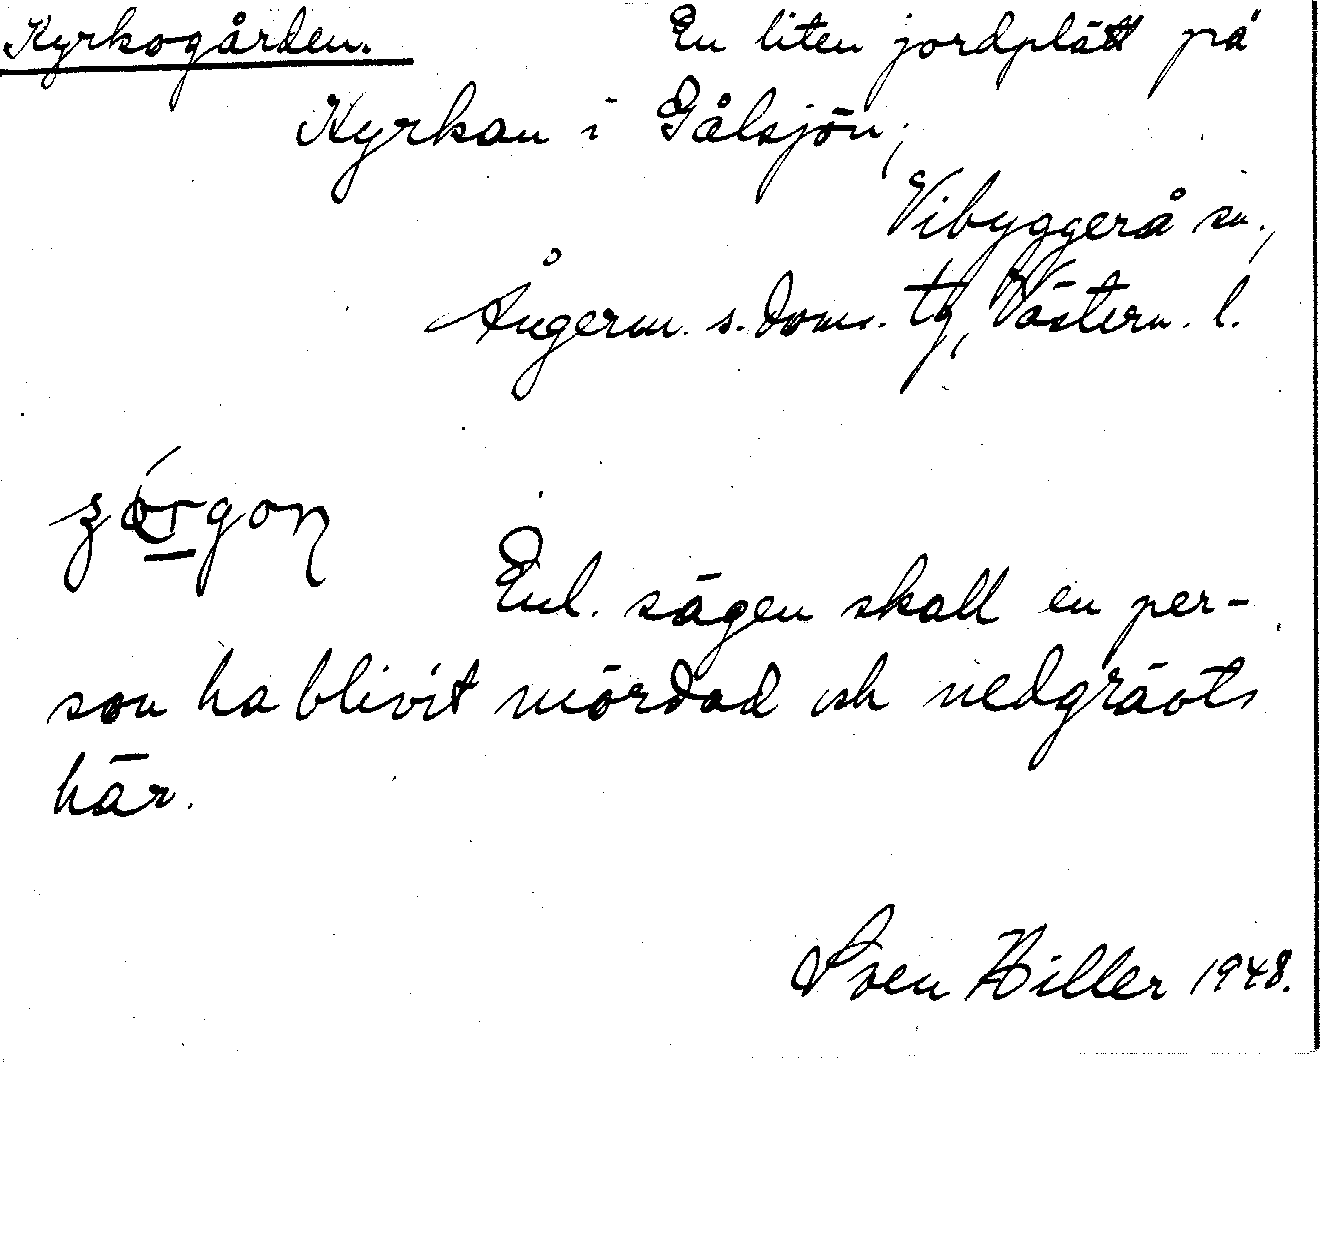 Kyrkogården. En liten jordplätt på
Kyrkan i Gålsjön,
Vibyggerå sn.,
Ångerm. s. doms. tg, Västern. l.
Enl. sägen skall en per-
son ha blivit mördad och nedgrävts
här.
Sven Hiller 1948.